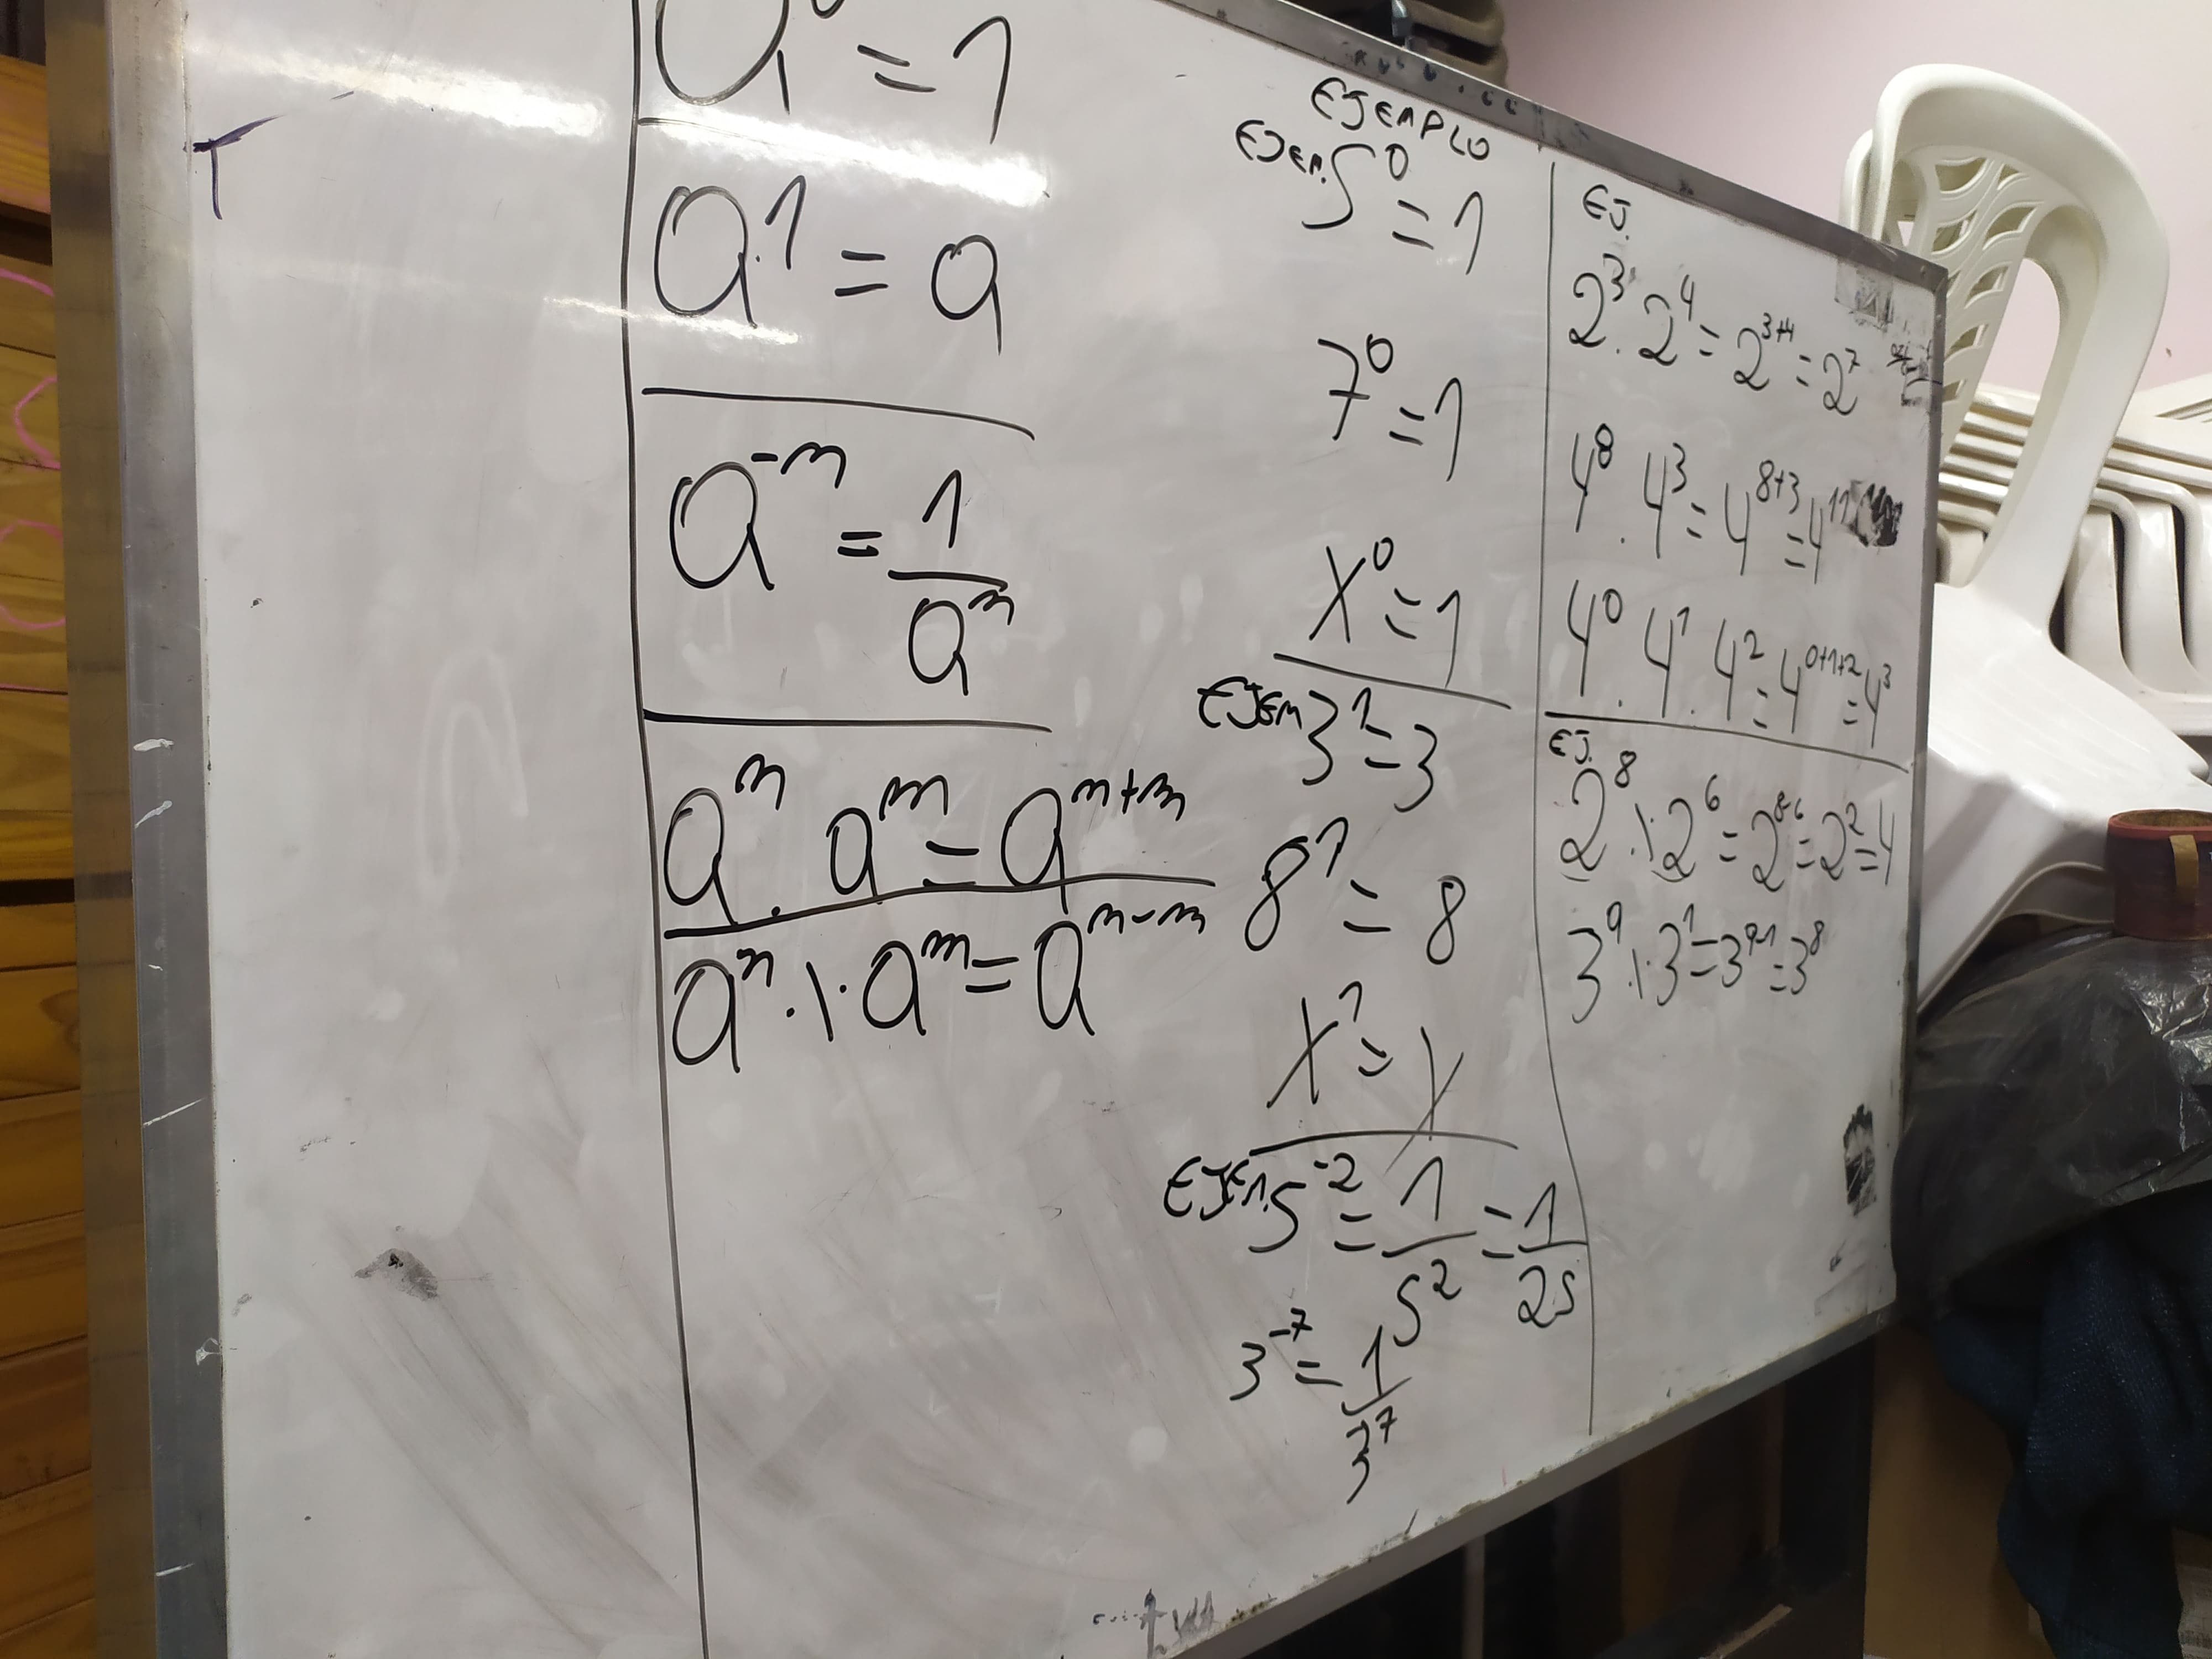 a⁰ = 1
a¹ = a
a⁻ⁿ = 1/aⁿ
aⁿ . aᵐ = aⁿ⁺ᵐ
aⁿ .\. aᵐ = aⁿ⁻ᵐ
EJEMPLO
EJEM. 5⁰ = 1
7⁰ = 1
x⁰ = 1
EJEM 3¹ = 3
8¹ = 8
x¹ = x
EJEM. 5⁻² = 1/5² = 1/25
3⁻⁷ = 1/3⁷
EJ.
2³ . 2⁴ = 2³⁺⁴ = 2⁷
4⁸ . 4³ = 4⁸⁺³ = 4¹¹
4⁰ . 4¹ . 4² = 4⁰⁺¹⁺² = 4³
EJ.
2⁸ .\. 2⁶ = 2⁸⁻⁶ = 2² = 4
3⁹ .\. 3¹ = 3⁹⁻¹ = 3⁸